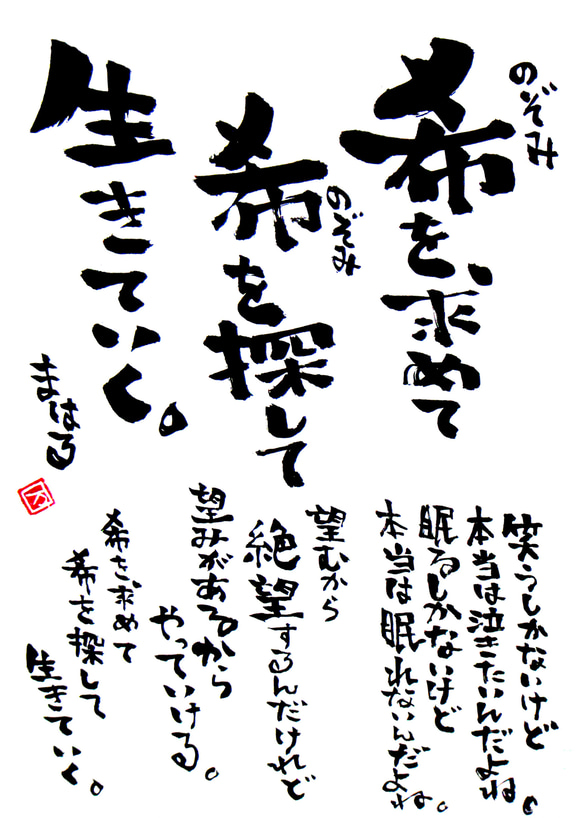 のぞみ
希を、求めて
のぞみ
希を探して
生きていく。
まはる
笑うしかないけど
本当は泣きたいんだよね。
眠るしかないけど
本当は眠れないんだよね。
望むから
絶望するんだけれど
望みがあるから
やっていける。
希を、求めて
希を探して
生きていく。